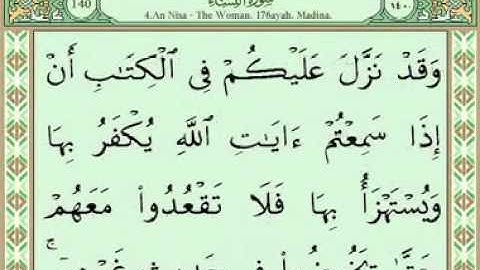 140 سورة النساء ١٤٠
4.An Nisa - The Woman. 176ayah. Madina.
وَقَدْ نَزَّلَ عَلَيْكُمْ فِى ٱلْكِتَٰبِ أَنْ
إِذَا سَمِعْتُمْ ءَايَٰتِ ٱللَّهِ يُكْفَرُ بِهَا
وَيُسْتَهْزَأُ بِهَا فَلَا تَقْعُدُوا۟ مَعَهُمْ
حَتَّىٰ يَخُوضُوا۟ فِى حَدِيثٍ غَيْرِهِۦٓ ۚ